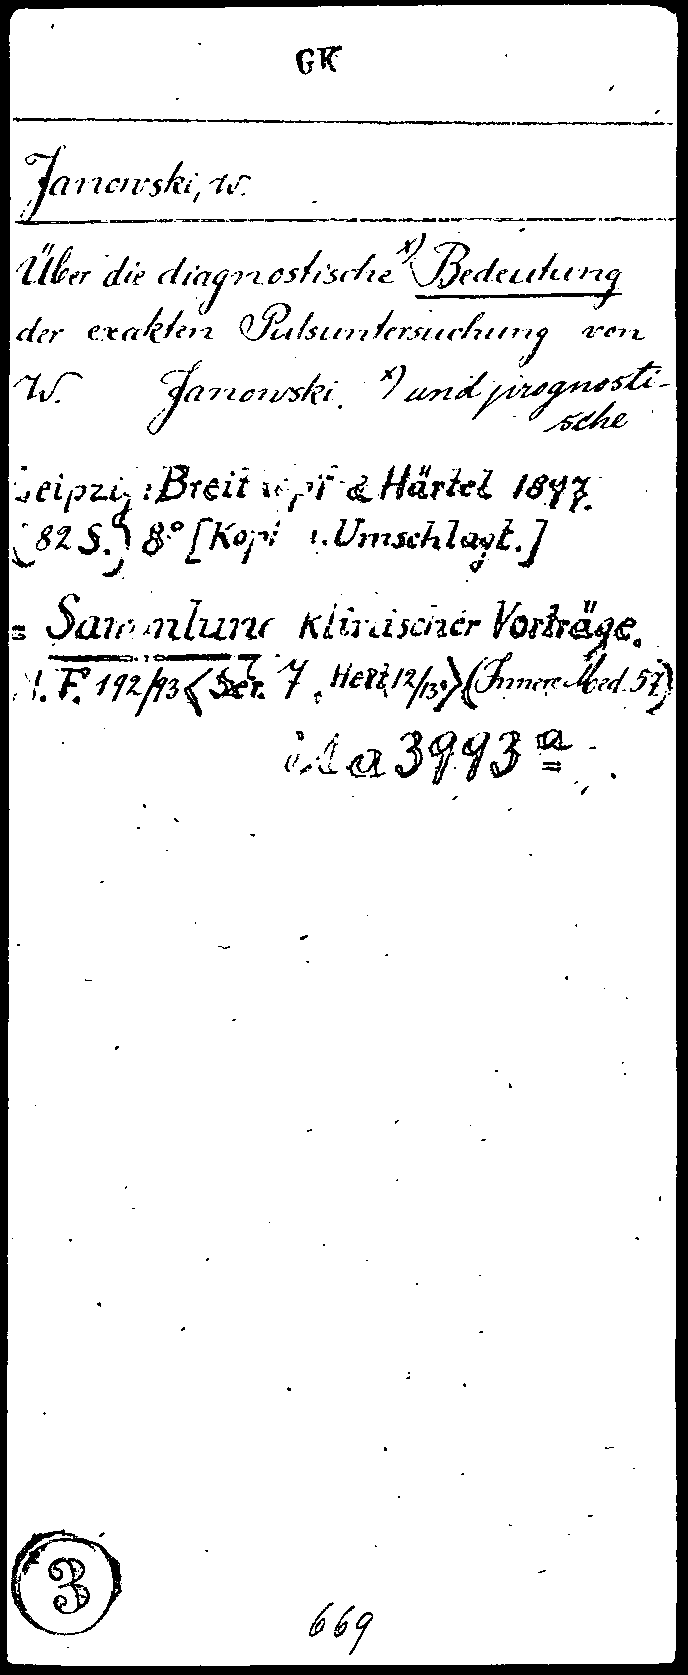 GK
Janowski, W.
Über die diagnostische x) Bedeutung
der exakten Pulsuntersuchung von
W. Janowski. x) und prognosti-
sche
Leipzig: Breitkopf & Härtel 1897.
(82 S.) 8° [Kopf- u. Umschlagt.]
= Sammlung klinischer Vorträge.
N. F. 192/93 < Ser. 7, Heft 12/13. > (Innere Med. 57)
a 3993 a
3
669